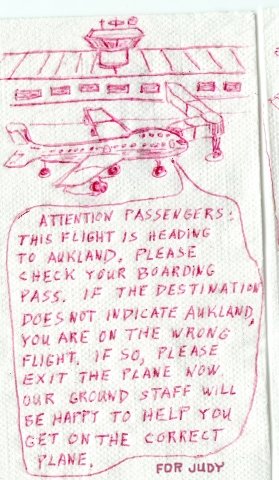 ATTENTION PASSENGERS:
THIS FLIGHT IS HEADING
TO AUKLAND. PLEASE
CHECK YOUR BOARDING
PASS. IF THE DESTINATION
DOES NOT INDICATE AUKLAND,
YOU ARE ON THE WRONG
FLIGHT. IF SO, PLEASE
EXIT THE PLANE NOW
OUR GROUND STAFF WILL
BE HAPPY TO HELP YOU
GET ON THE CORRECT
PLANE.
FOR JUDY